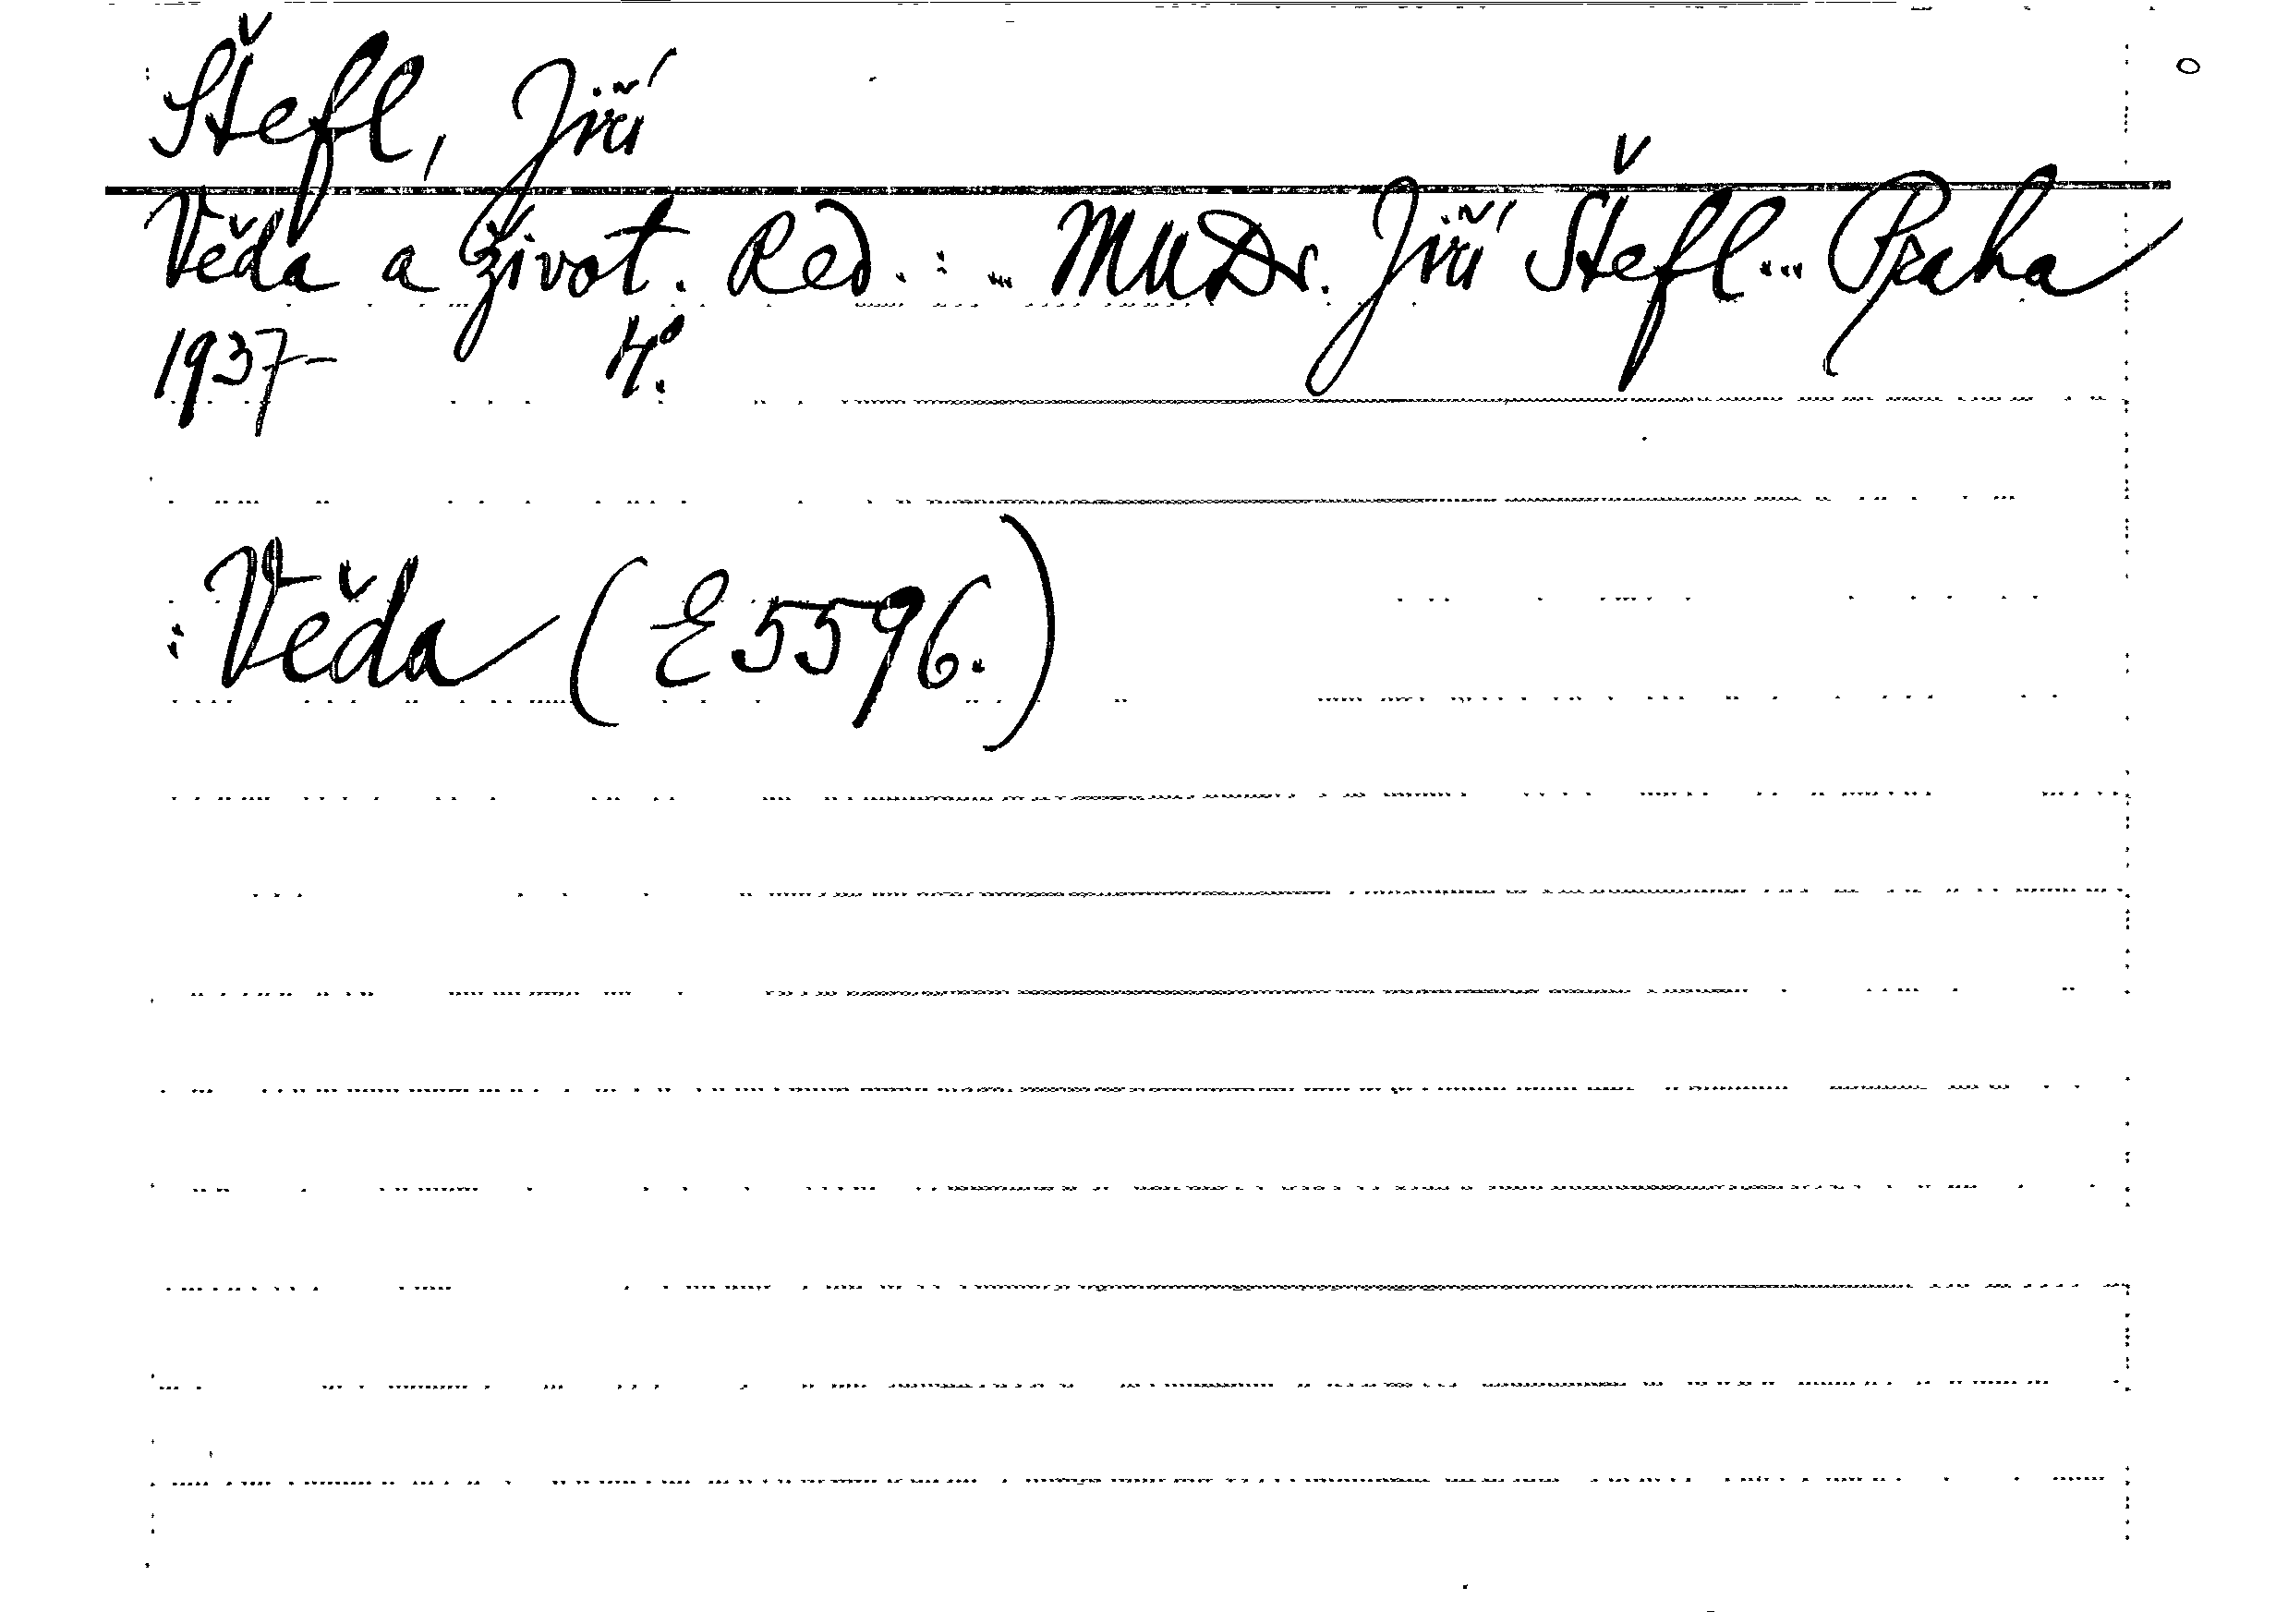 Štefl, Jiří
Věda a život. Red.: ... MUDr. Jiří Štefl... Praha
1937- 4°.
: Věda (E 5596.)